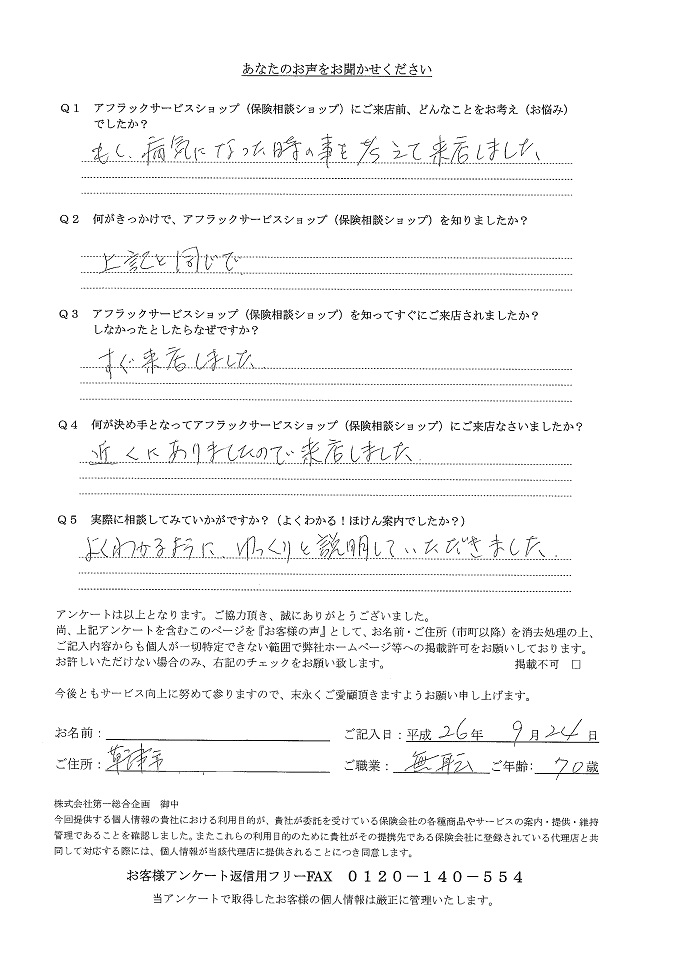 あなたのお声をお聞かせください
Q1 アフラックサービスショップ（保険相談ショップ）にご来店前、どんなことをお考え（お悩み）
でしたか？
もし、病気になった時の事を考えて来店しました
Q2 何がきっかけで、アフラックサービスショップ（保険相談ショップ）を知りましたか？
上記と同じで
Q3 アフラックサービスショップ（保険相談ショップ）を知ってすぐにご来店されましたか？
しなかったとしたらなぜですか？
すぐ来店しました
Q4 何が決め手となってアフラックサービスショップ（保険相談ショップ）にご来店なさいましたか？
近くにありましたので来店しました
Q5 実際に相談してみていかがですか？（よくわかる！ほけん案内でしたか？）
よくわかるように、ゆっくりと説明していただきました
アンケートは以上となります。ご協力頂き、誠にありがとうございました。
尚、上記アンケートを含むこのページを『お客様の声』として、お名前・ご住所（市町以降）を消去処理の上、
ご記入内容からも個人が一切特定できない範囲で弊社ホームページ等への掲載許可をお願いしております。
お許しいただけない場合のみ、右記のチェックをお願い致します。 掲載不可 □
今後ともサービス向上に努めて参りますので、末永くご愛顧頂きますようお願い申し上げます。
お名前： ご記入日：平成 26年 9月24日
ご住所：草津市 ご職業： 無職 ご年齢： 70歳
株式会社第一総合企画 御中
今回提供する個人情報の貴社における利用目的が、貴社が委託を受けている保険会社の各種商品やサービスの案内・提供・維持
管理であることを確認しました。またこれらの利用目的のために貴社がその提携先である保険会社に登録されている代理店と共
同して対応する際には、個人情報が当該代理店に提供されることにつき同意します。
お客様アンケート返信用フリーFAX 0120－140－554
当アンケートで取得したお客様の個人情報は厳正に管理いたします。